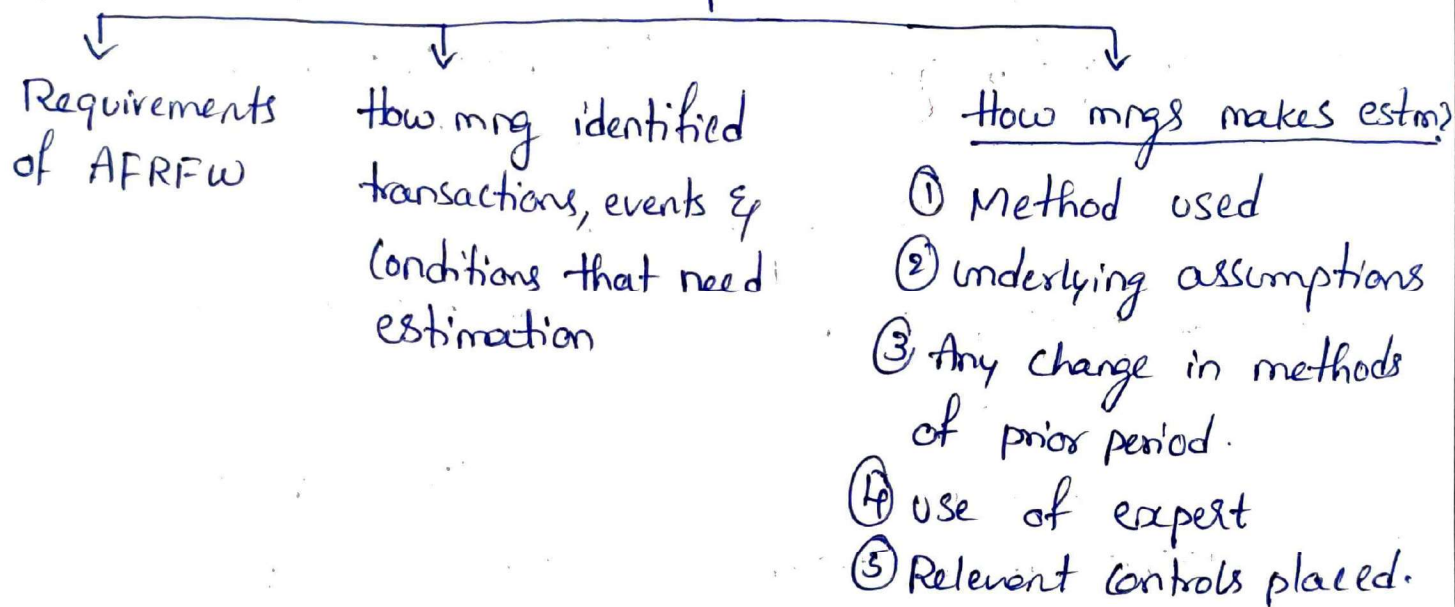 Requirements
of AFRFW
How mng identified
transactions, events &
Conditions that need
estimation
How mngs makes estm?
① Method used
② underlying assumptions
③ Any change in methods
of prior period.
④ use of expert
⑤ Relevant Controls placed.